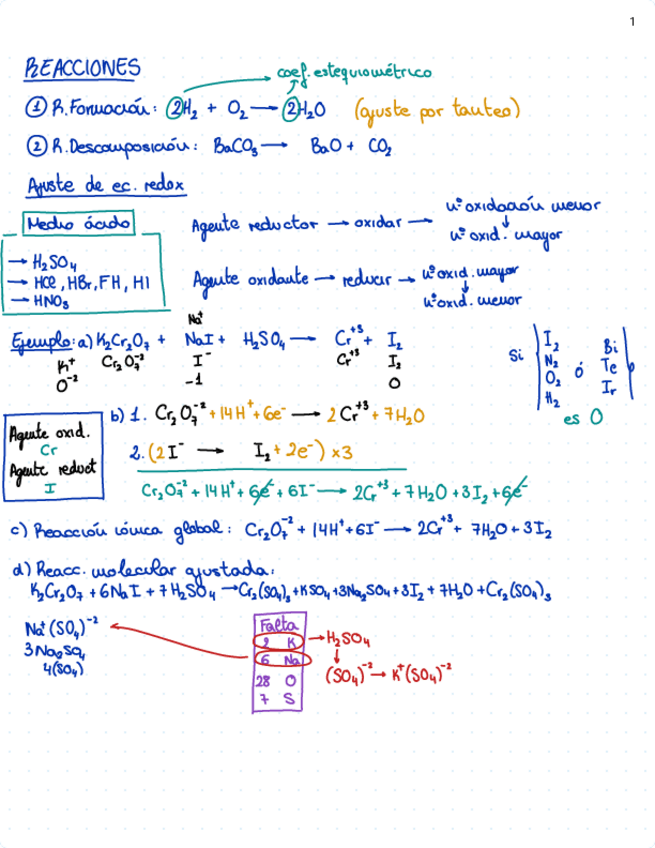 1
REACCIONES
coef. estequiométrico
① R. Formación: 2H₂ + O₂ → 2H₂O (ajuste por tanteo)
② R. Descomposición: BaCO₃ → BaO + CO₂
Ajuste de ec. redox
Medio ácido
→ H₂SO₄
→ HCl, HBr, FH, HI
→ HNO₃
Agente reductor → oxidar → nº oxidación menor
↓
nº oxid. mayor
Agente oxidante → reducir → nº oxid. mayor
↓
nº oxid. menor
Na⁺
Ejemplo: a) K₂Cr₂O₇ + NaI + H₂SO₄ → Cr⁺³ + I₂
K⁺ Cr₂O₇⁻² I⁻ Cr⁺³ I₂
O⁻² -1 0
Si | I₂ N₂ O₂ H₂ ó Bi Te Ir |
es 0
Agente oxid.
Cr
Agente reduct
I
b) 1. Cr₂O₇⁻² + 14H⁺ + 6e⁻ → 2Cr⁺³ + 7H₂O
2. (2I⁻ → I₂ + 2e⁻) ×3
Cr₂O₇⁻² + 14H⁺ + 6e⁻ + 6I⁻ → 2Cr⁺³ + 7H₂O + 3I₂ + 6e⁻
c) Reacción iónica global: Cr₂O₇⁻² + 14H⁺ + 6I⁻ → 2Cr⁺³ + 7H₂O + 3I₂
d) Reacc. molecular ajustada:
K₂Cr₂O₇ + 6NaI + 7H₂SO₄ → Cr₂(SO₄)₃ + KSO₄ + 3Na₂SO₄ + 3I₂ + 7H₂O + Cr₂(SO₄)₃
Na⁺(SO₄)⁻²
3Na₂SO₄
4(SO₄)
Falta
2 K
6 Na
28 O
7 S
→ H₂SO₄
↓
(SO₄)⁻² → K⁺(SO₄)⁻²